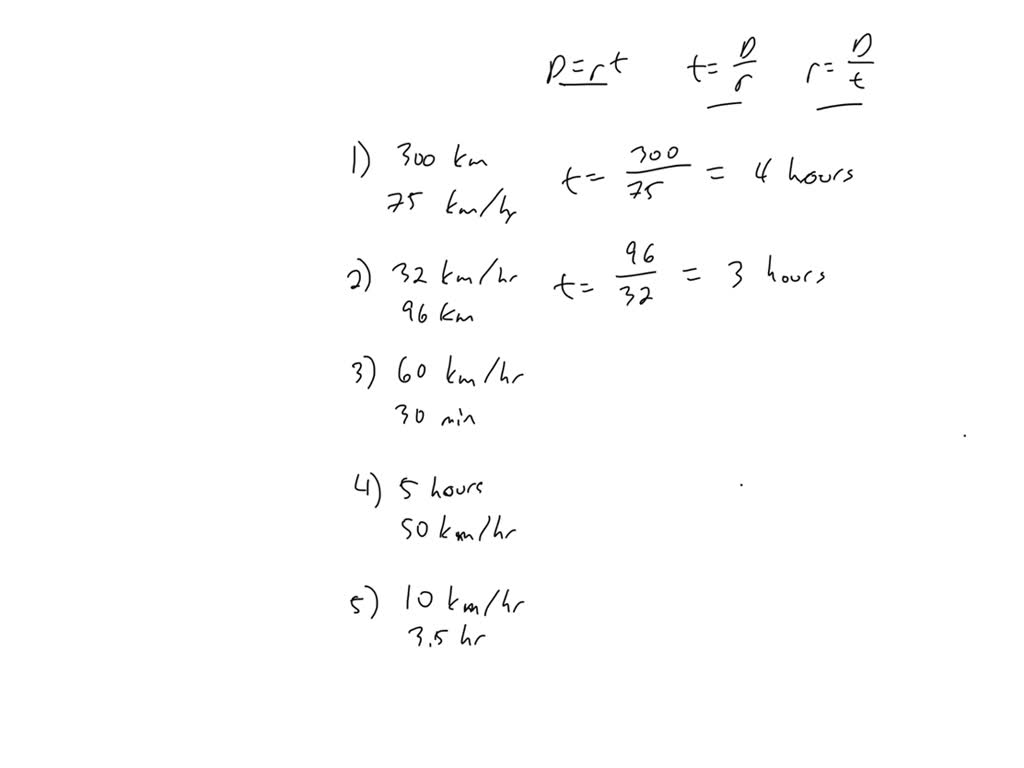 D=rt t= D/r r= D/t
1) 300 km t= 300/75 = 4 hours
75 km/hr
2) 32 km/hr t= 96/32 = 3 hours
96 km
3) 60 km/hr
30 min
4) 5 hours
50 km/hr
5) 10 km/hr
3.5 hr